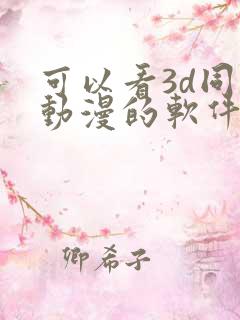 可以看3d同
動漫的軟件
卿希子